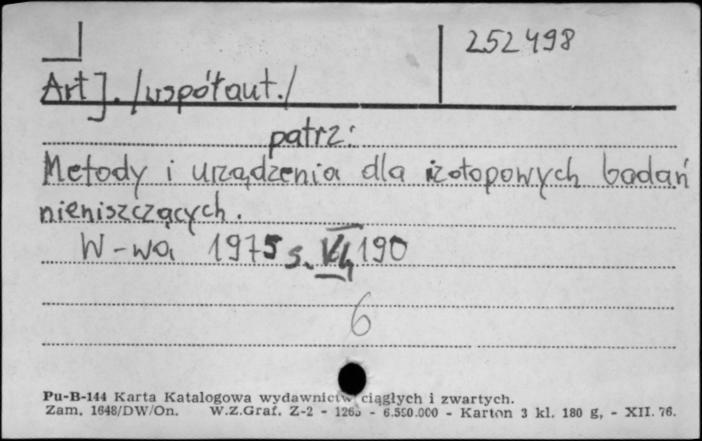 252498
Art J. /współaut./
patrz:
Metody i urządzenia dla izotopowych badań
nieniszczących.
W-wa 1975 s. 190
6
Pu-B-144 Karta Katalogowa wydawnictw ciągłych i zwartych.
Zam. 1648/DW/On. W.Z.Graf. Z-2 - - 6.550.000 - Karton 3 kl. 180 g, - XII. 76.